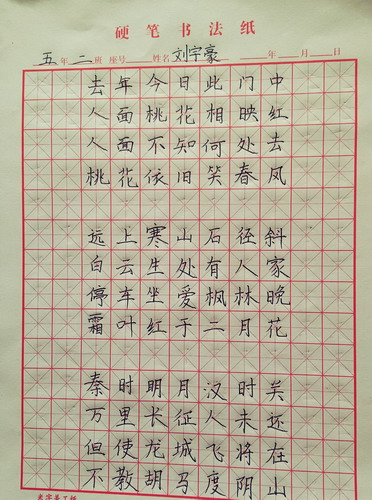 硬笔书法纸
五年二班 座号 姓名刘宇豪 年 月 日
去年今日此门中
人面桃花相映红
人面不知何处去
桃花依旧笑春风
远上寒山石径斜
白云生处有人家
停车坐爱枫林晚
霜叶红于二月花
秦时明月汉时关
万里长征人未还
但使龙城飞将在
不教胡马度阴山